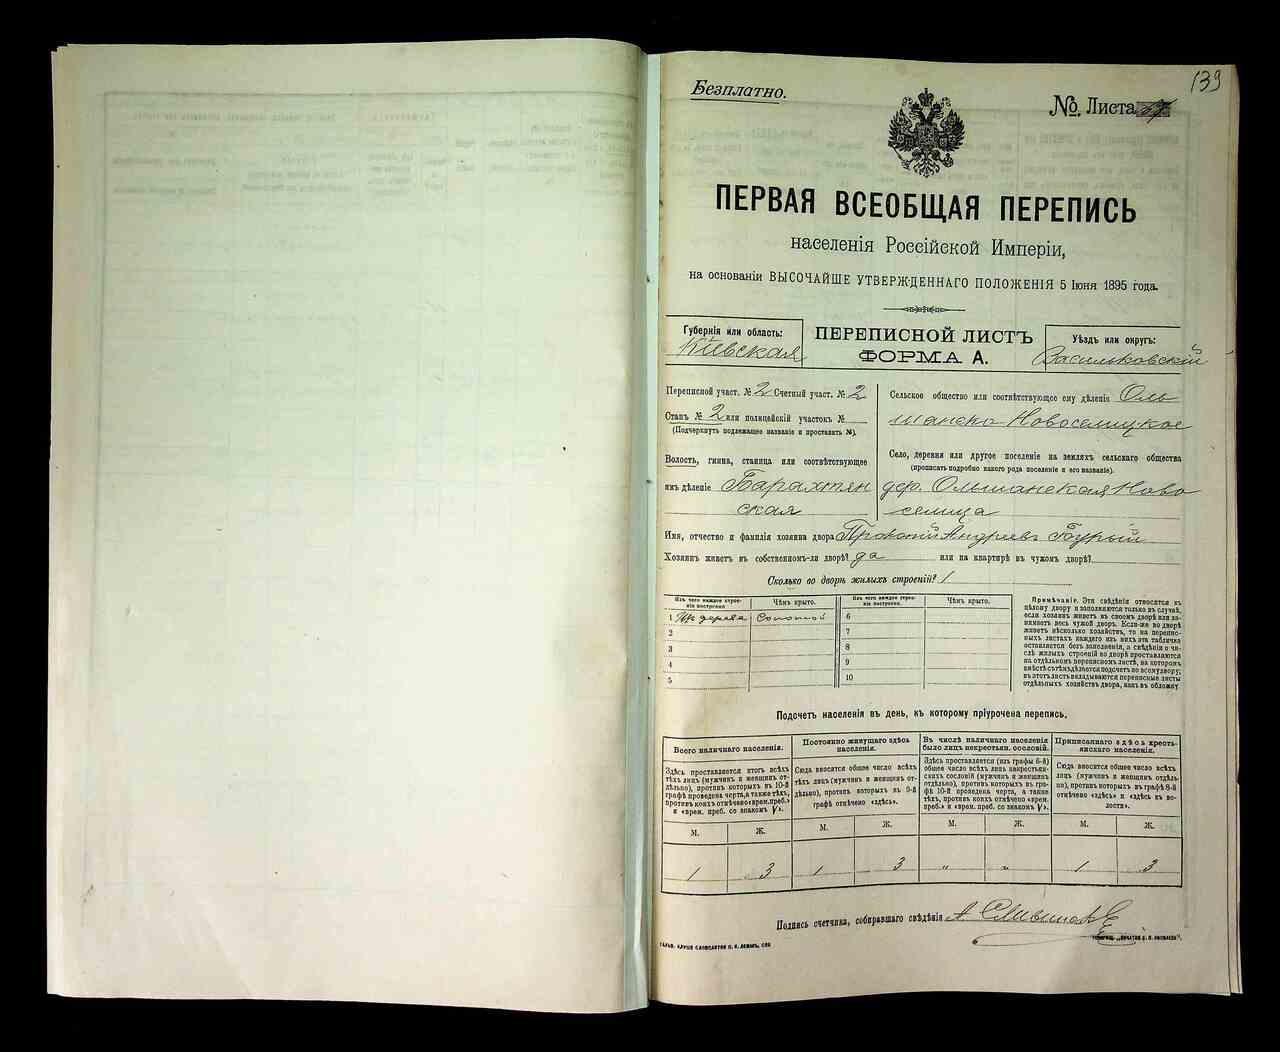 139
Безплатно.
№. Листа
ПЕРВАЯ ВСЕОБЩАЯ ПЕРЕПИСЬ
населенія Россійской Имперіи,
на основаніи ВЫСОЧАЙШЕ УТВЕРЖДЕННАГО ПОЛОЖЕНІЯ 5 Іюня 1895 года.
Губернія или область:
Кіевская
ПЕРЕПИСНОЙ ЛИСТЪ
ФОРМА А.
Уѣздъ или округъ:
Васильковскій
Переписной участ. № 2 Счетный участ. № 2
Станъ № 2 или полицейскій участокъ №
(Подчеркнуть подлежащее названіе и проставить №).
Волость, гмина, станица или соотвѣтствующее
имъ дѣленіе Барахтян
ская
Сельское общество или соотвѣтствующее ему дѣленіе Оль
шанско Новоселицкое
Село, деревня или другое поселеніе на земляхъ сельскаго общества
(прописать подробно какого рода поселеніе и его названіе).
дер. Ольшанская Ново
селица
Имя, отчество и фамилія хозяина двора Андреевъ Бурый
Хозяинъ живетъ въ собственномъ-ли дворѣ? да или на квартирѣ въ чужомъ дворѣ?
Сколько во дворѣ жилыхъ строеній? 1
Изъ чего каждое строе-
ніе построено
Чѣмъ крыто.
Изъ чего каждое строе-
ніе построено.
Чѣмъ крыто.
1 Изъ дерева Соломой 6
2 7
3 8
4 9
5 10
Примѣчаніе. Эти свѣдѣнія относятся къ
цѣлому двору и заполняются только въ случаѣ,
если хозяинъ живетъ въ своемъ дворѣ или за-
нимаетъ весь чужой дворъ. Если-же во дворѣ
живетъ нѣсколько хозяйствъ, то на перепис-
ныхъ листахъ каждаго изъ нихъ эта табличка
оставляется безъ заполненія, а свѣдѣнія о чи-
слѣ жилыхъ строеній во дворѣ проставляются
на отдѣльномъ переписномъ листѣ, на которомъ
вмѣстѣ съ тѣмъ дѣлается подсчетъ по всему двору;
въ этотъ листъ вкладываются переписные листы
отдѣльныхъ хозяйствъ двора, какъ въ обложку
Подсчетъ населенія въ день, къ которому пріурочена перепись.
Всего наличнаго населенія.
Здѣсь проставляется итогъ всѣхъ
тѣхъ лицъ (мужчинъ и женщинъ от-
дѣльно), противъ которыхъ въ 10-й
графѣ проведена черта, а также тѣхъ,
противъ коихъ отмѣчено «врем. преб.»
и «врем. преб. со знакомъ V».
Постоянно живущаго здѣсь
населенія.
Сюда вносится общее число всѣхъ
тѣхъ лицъ (мужчинъ и женщинъ от-
дѣльно), противъ которыхъ въ 9-й
графѣ отмѣчено «здѣсь».
Въ числѣ наличнаго населенія
было лицъ некрестьян. сословій.
Здѣсь проставляется (изъ графы 6-й)
общее число всѣхъ лицъ некрестьян-
скихъ сословій (мужчинъ и женщинъ
отдѣльно), противъ которыхъ въ гра-
фѣ 10-й проведена черта, а также
тѣхъ, противъ коихъ отмѣчено «врем.
преб.» и «врем. преб. со знакомъ V».
Приписаннаго здѣсь кресть-
янскаго населенія.
Сюда вносится общее число всѣхъ
лицъ (мужчинъ и женщинъ отдѣль-
но), противъ которыхъ въ графѣ 8-й
отмѣчено «здѣсь» и «здѣсь въ во-
лости».
М. Ж. М. Ж. М. Ж. М. Ж.
1 3 1 3 „ „ 1 3
Подпись счетчика, собиравшаго свѣдѣнія А.